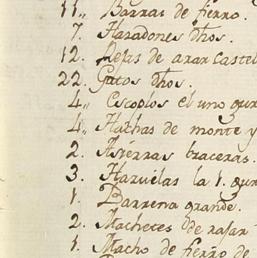 11,, Barras de fierro.
7. Hazadones dhos.
12. Rejas de arar Castel
22. Gatos dhos.
4,, Escoplos el uno gur
4,, Hachas de monte y
2. Asierras braceras.
3. Hazuelas la 1. gur
1. Barrena grande.
2. Machetes de rajar
1. Macho de fierro de